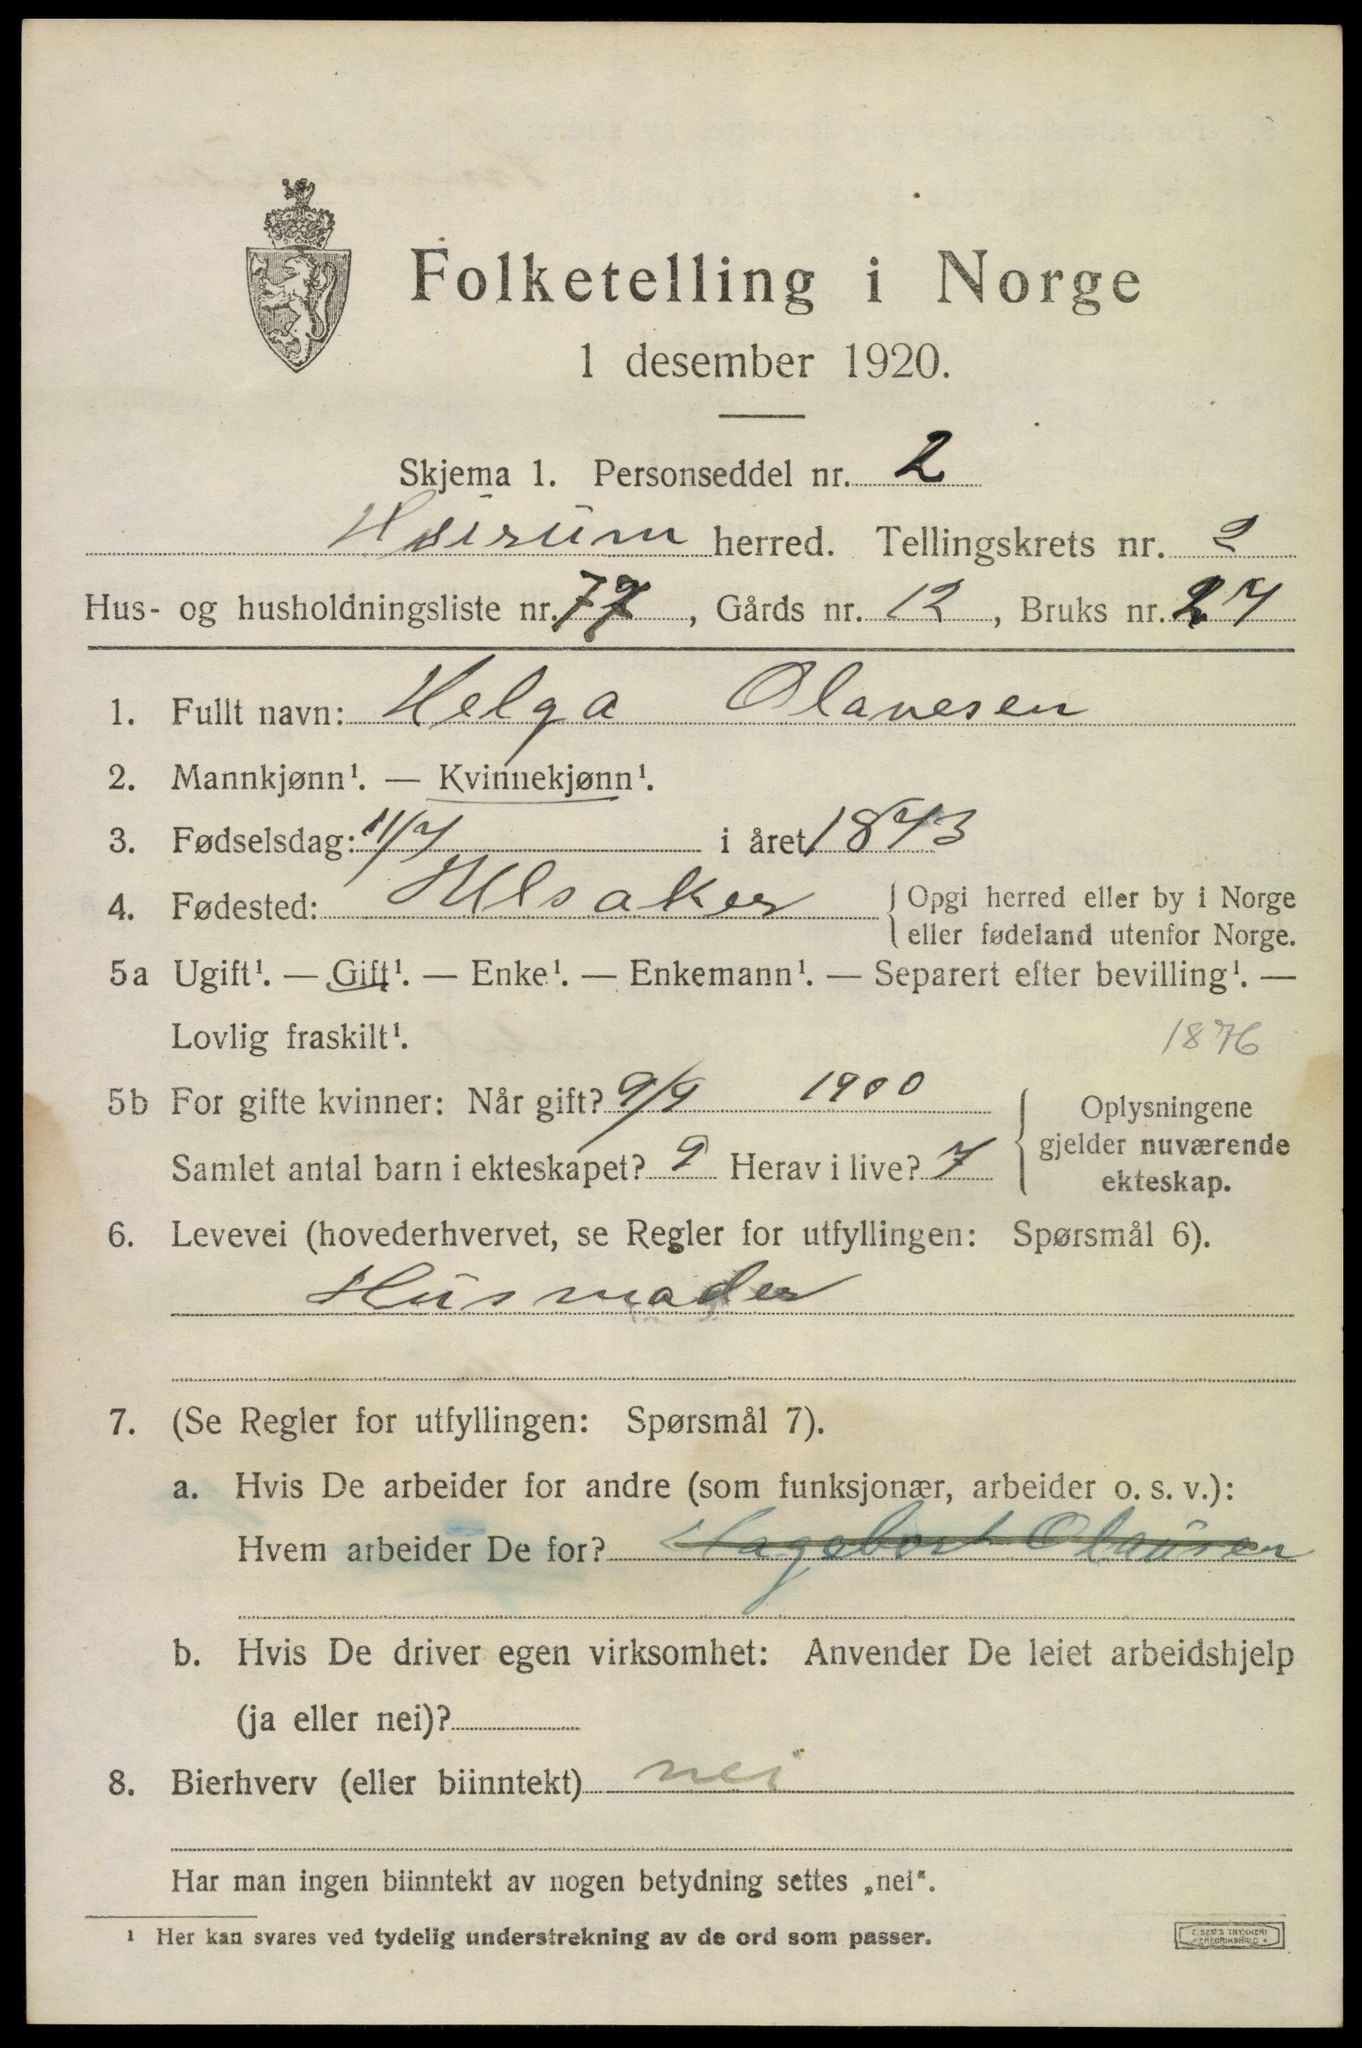 Folketelling i Norge
1 desember 1920.
Skjema 1. Personseddel nr. 2
herred. Tellingskrets nr. 2
Hus- og husholdningsliste nr. 77, Gårds nr. 12, Bruks nr. 27
1. Fullt navn: Helga Olavesen
2. Mannkjønn¹. — Kvinnekjønn¹.
3. Fødselsdag: 11/7 i året 1873
4. Fødested: Ulsaker { Opgi herred eller by i Norge
eller fødeland utenfor Norge.
5a Ugift¹. — Gift¹. — Enke¹. — Enkemann¹. — Separert efter bevilling¹. —
Lovlig fraskilt¹. 1876
5b For gifte kvinner: Når gift? 9/9 1900
Samlet antal barn i ekteskapet? 9 Herav i live? 7
{ Oplysningene
gjelder nuværende
ekteskap.
6. Levevei (hovederhvervet, se Regler for utfyllingen: Spørsmål 6).
Husmoder
7. (Se Regler for utfyllingen: Spørsmål 7).
a. Hvis De arbeider for andre (som funksjonær, arbeider o. s. v.):
Hvem arbeider De for? Hagebort Olausen
b. Hvis De driver egen virksomhet: Anvender De leiet arbeidshjelp
(ja eller nei)?
8. Bierhverv (eller biinntekt) nei
Har man ingen biinntekt av nogen betydning settes „nei“.
¹ Her kan svares ved tydelig understrekning av de ord som passer.